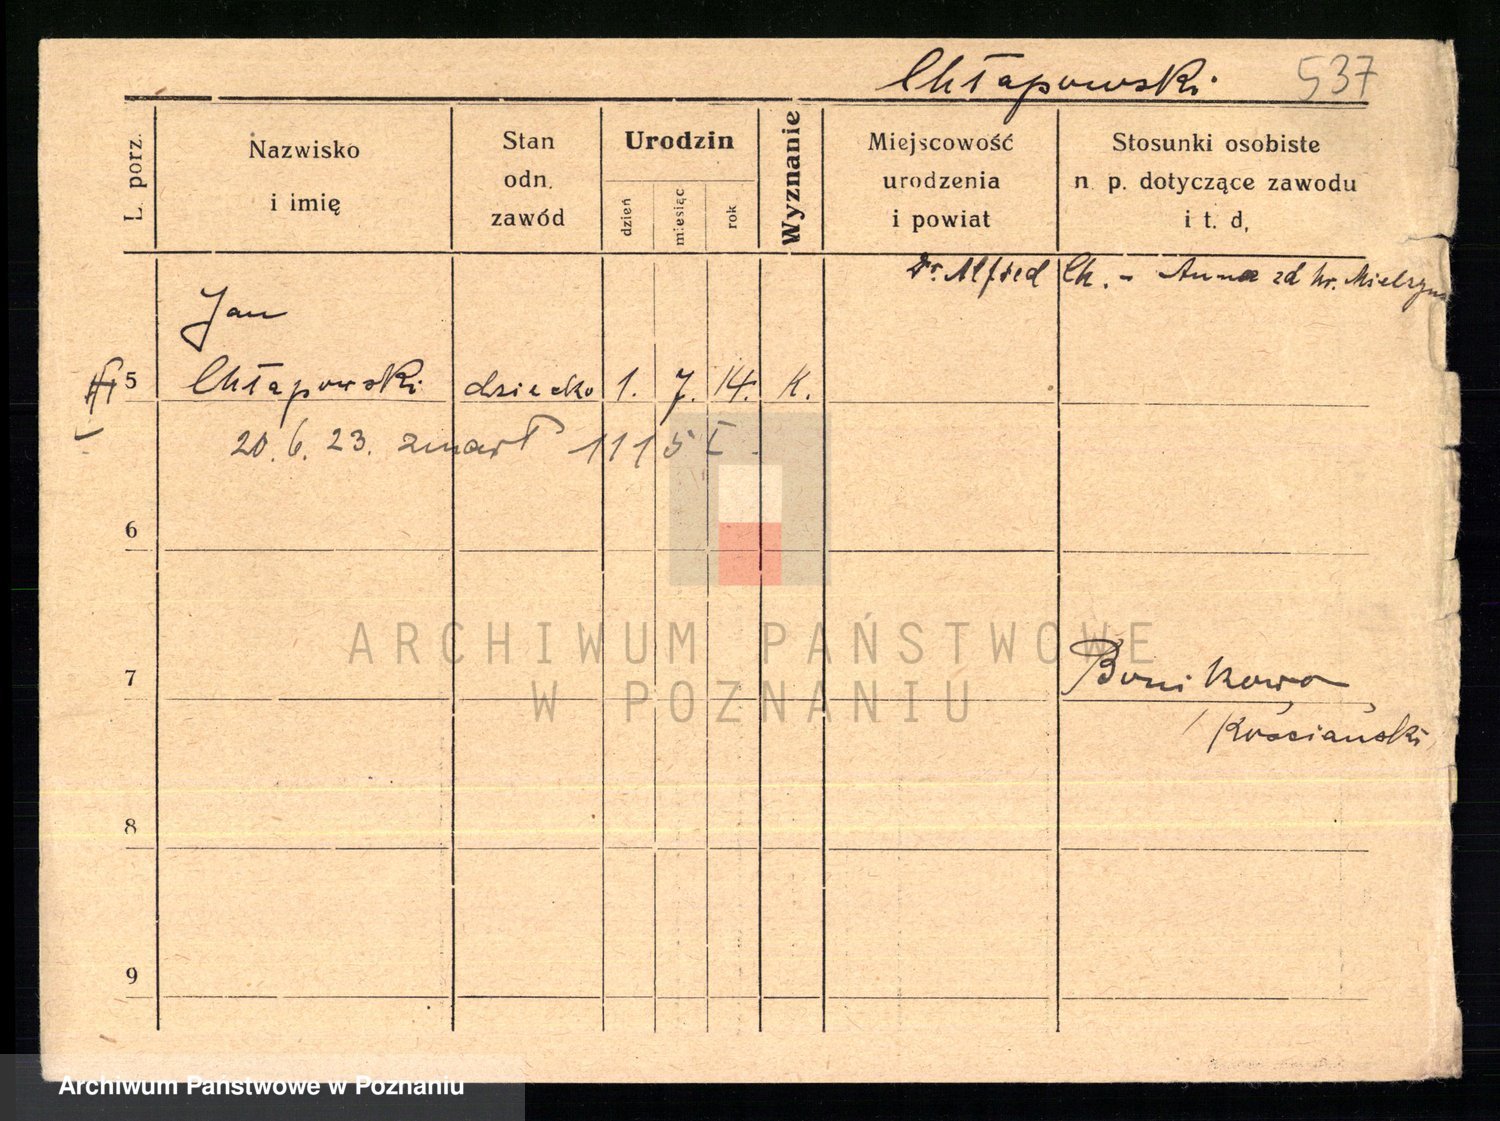 Chłapowski 537
L. porz.
Nazwisko
i imię
Stan
odn.
zawód
Urodzin
dzień
miesiąc
rok
Wyznanie
Miejscowość
urodzenia
i powiat
Stosunki osobiste
n. p. dotyczące zawodu
i t. d.
Dr. Alfred Ch. - Anna zd hr. Mielżyns
Jan
5 Chłapowski dziecko 1. 7. 14. K.
20. 6. 23. zmarł 1115 I.
6
7 Bonikowo
Kościański
8
9
ARCHIWUM PAŃSTWOWE
W POZNANIU
Archiwum Państwowe w Poznaniu